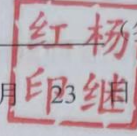 红杨
印继
月 23 日